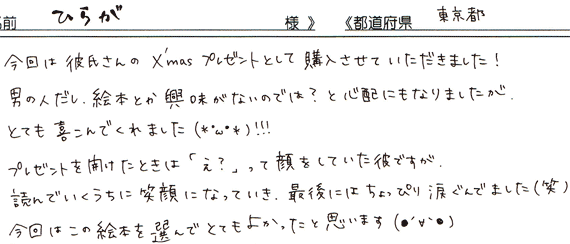 名前 ひらが 様 》 《都道府県 東京都
今回は彼氏さんのX'masプレゼントとして購入させていただきました！
男の人だし、絵本とか興味がないのでは？と心配にもなりましたが、
とても喜こんでくれました(*･ω･*)!!!
プレゼントを開けたときは「え？」って顔をしていた彼ですが、
読んでいくうちに笑顔になっていき、最後にはちょっぴり涙ぐんでました(笑)
今回はこの絵本を選んでとてもよかったと思います(●'∀'●)